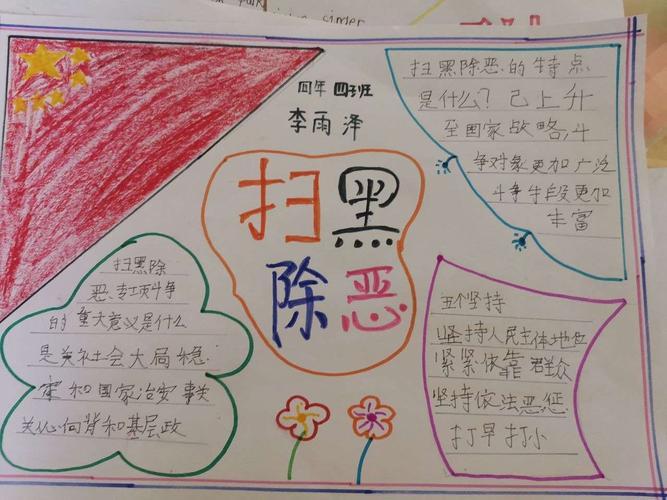 四年四班
李雨泽
扫黑
除恶
扫黑除恶的特点
是什么？已上升
至国家战略，斗
争对象更加广泛
斗争手段更加
丰富
扫黑除
恶、专项斗争
的重大意义是什么
是关社会大局稳
和国家治安事关
人心向背和基层政
五个坚持
坚持人民主体地位
紧紧依靠群众
坚持依法惩
打早打小